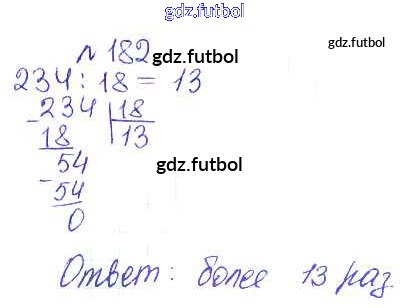 gdz.futbol
№ 182
gdz.futbol
gdz.futbol
234 : 18 = 13
- 234 | 18
18 | 13
54
gdz.futbol
- 54
0
Ответ: более 13 раз.